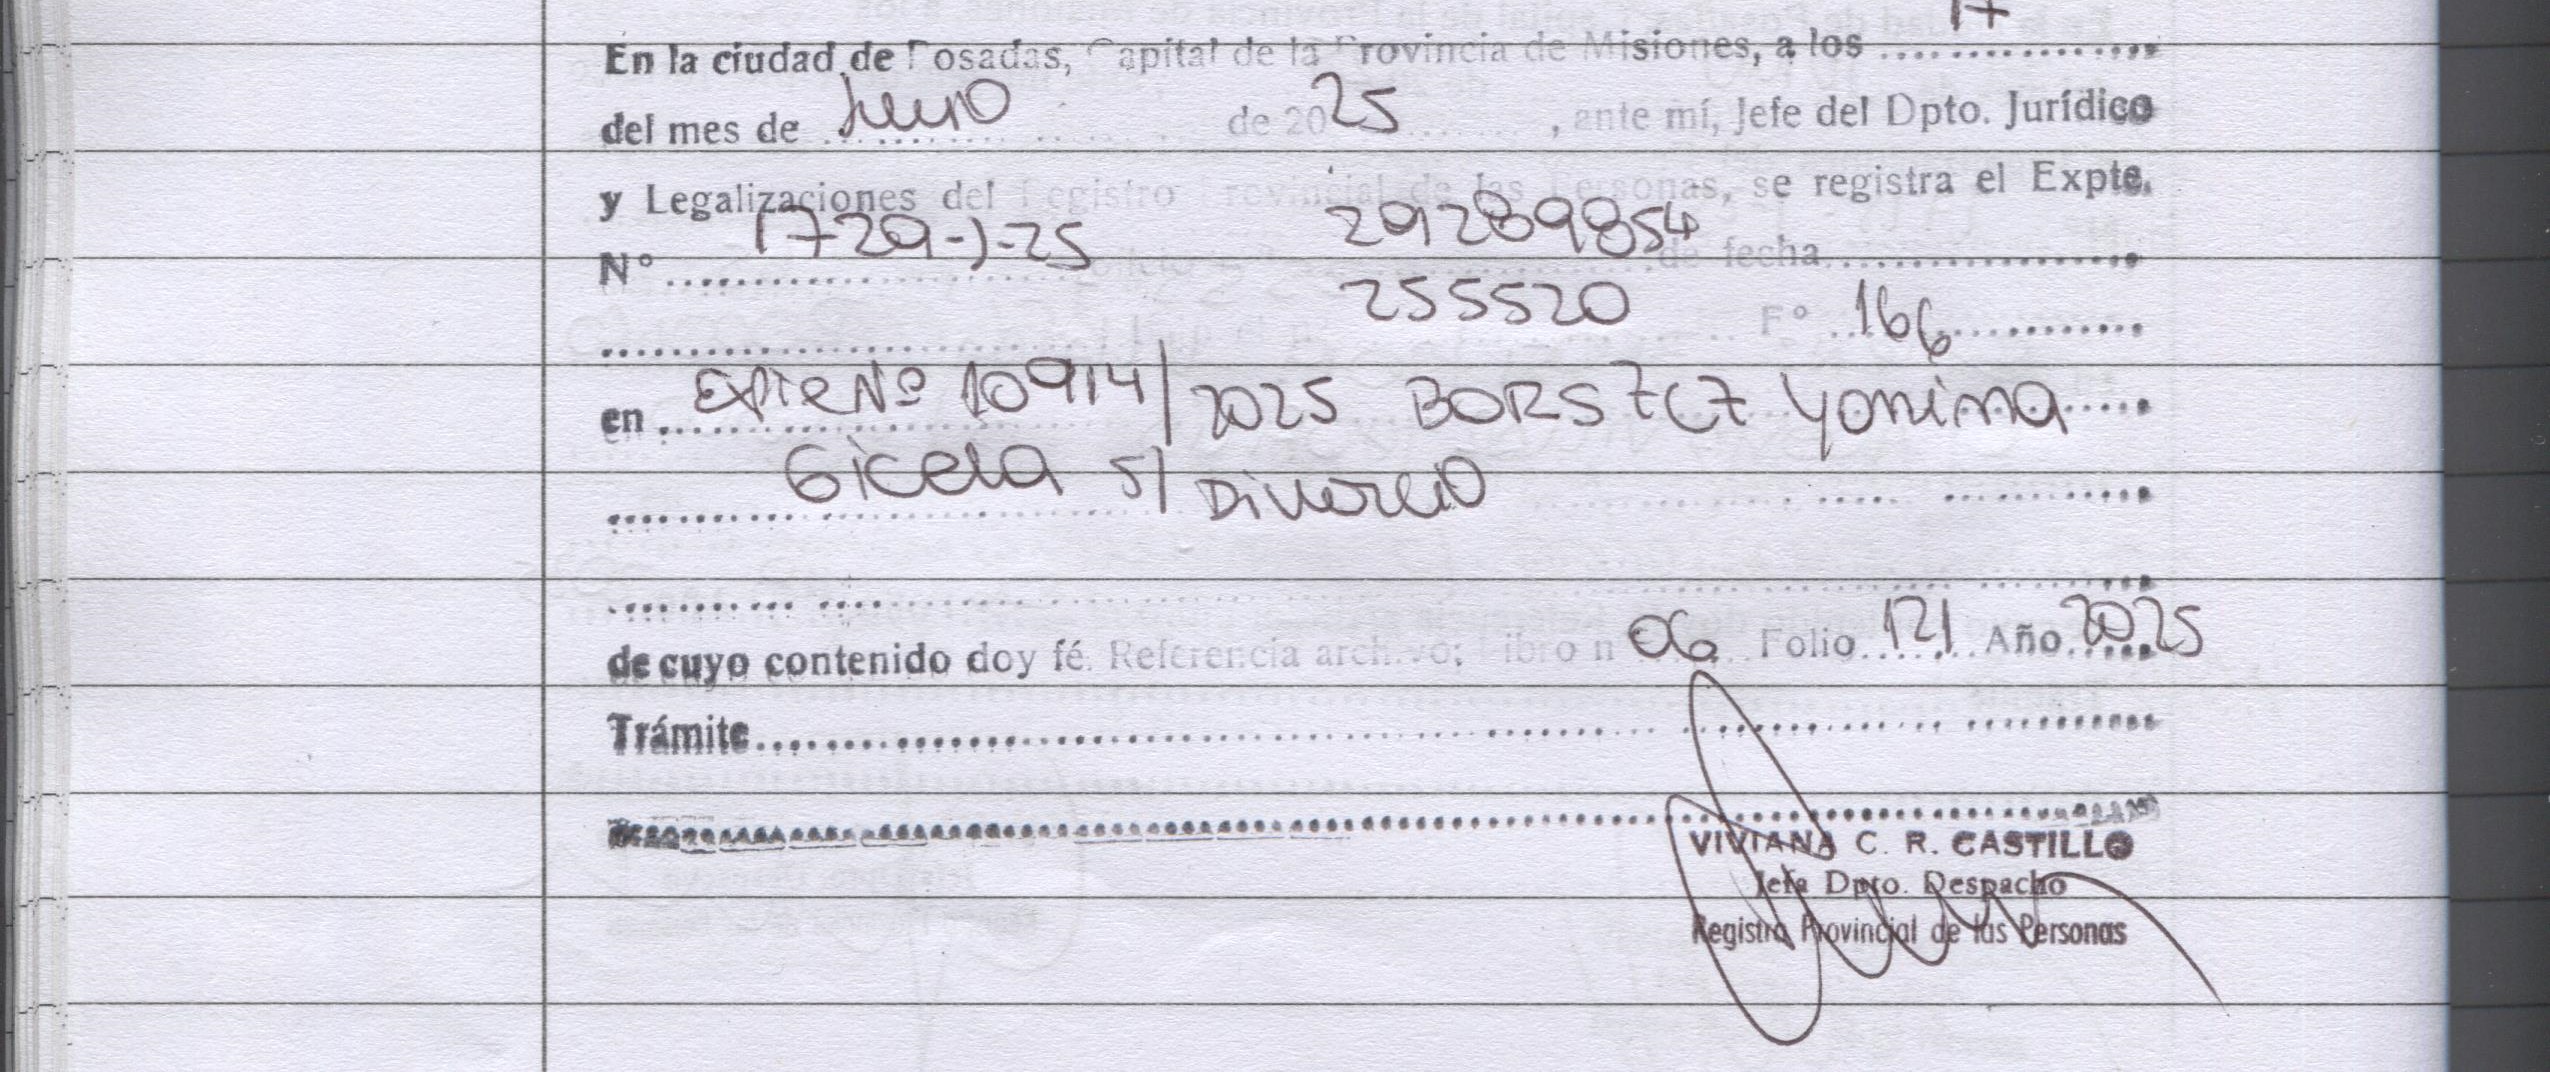 17
En la ciudad de Posadas, Capital de la Provincia de Misiones, a los ....................
del mes de Junio de 2025 , ante mí, Jefe del Dpto. Jurídico
y Legalizaciones del Registro Provincial de las Personas, se registra el Expte.
N° 1729-J-25 29289854 de fecha....................
255520 F° 166
en Expte Nº 10914/2025 BORSZCZ Yanina
Gicela s/ Divorcio
de cuyo contenido doy fé. Referencia archivo: Libro n 06 Folio 121 Año 2025
Trámite....................
VIVIANA C. R. CASTILLO
Jefa Dpto. Despacho
Registro Provincial de las Personas